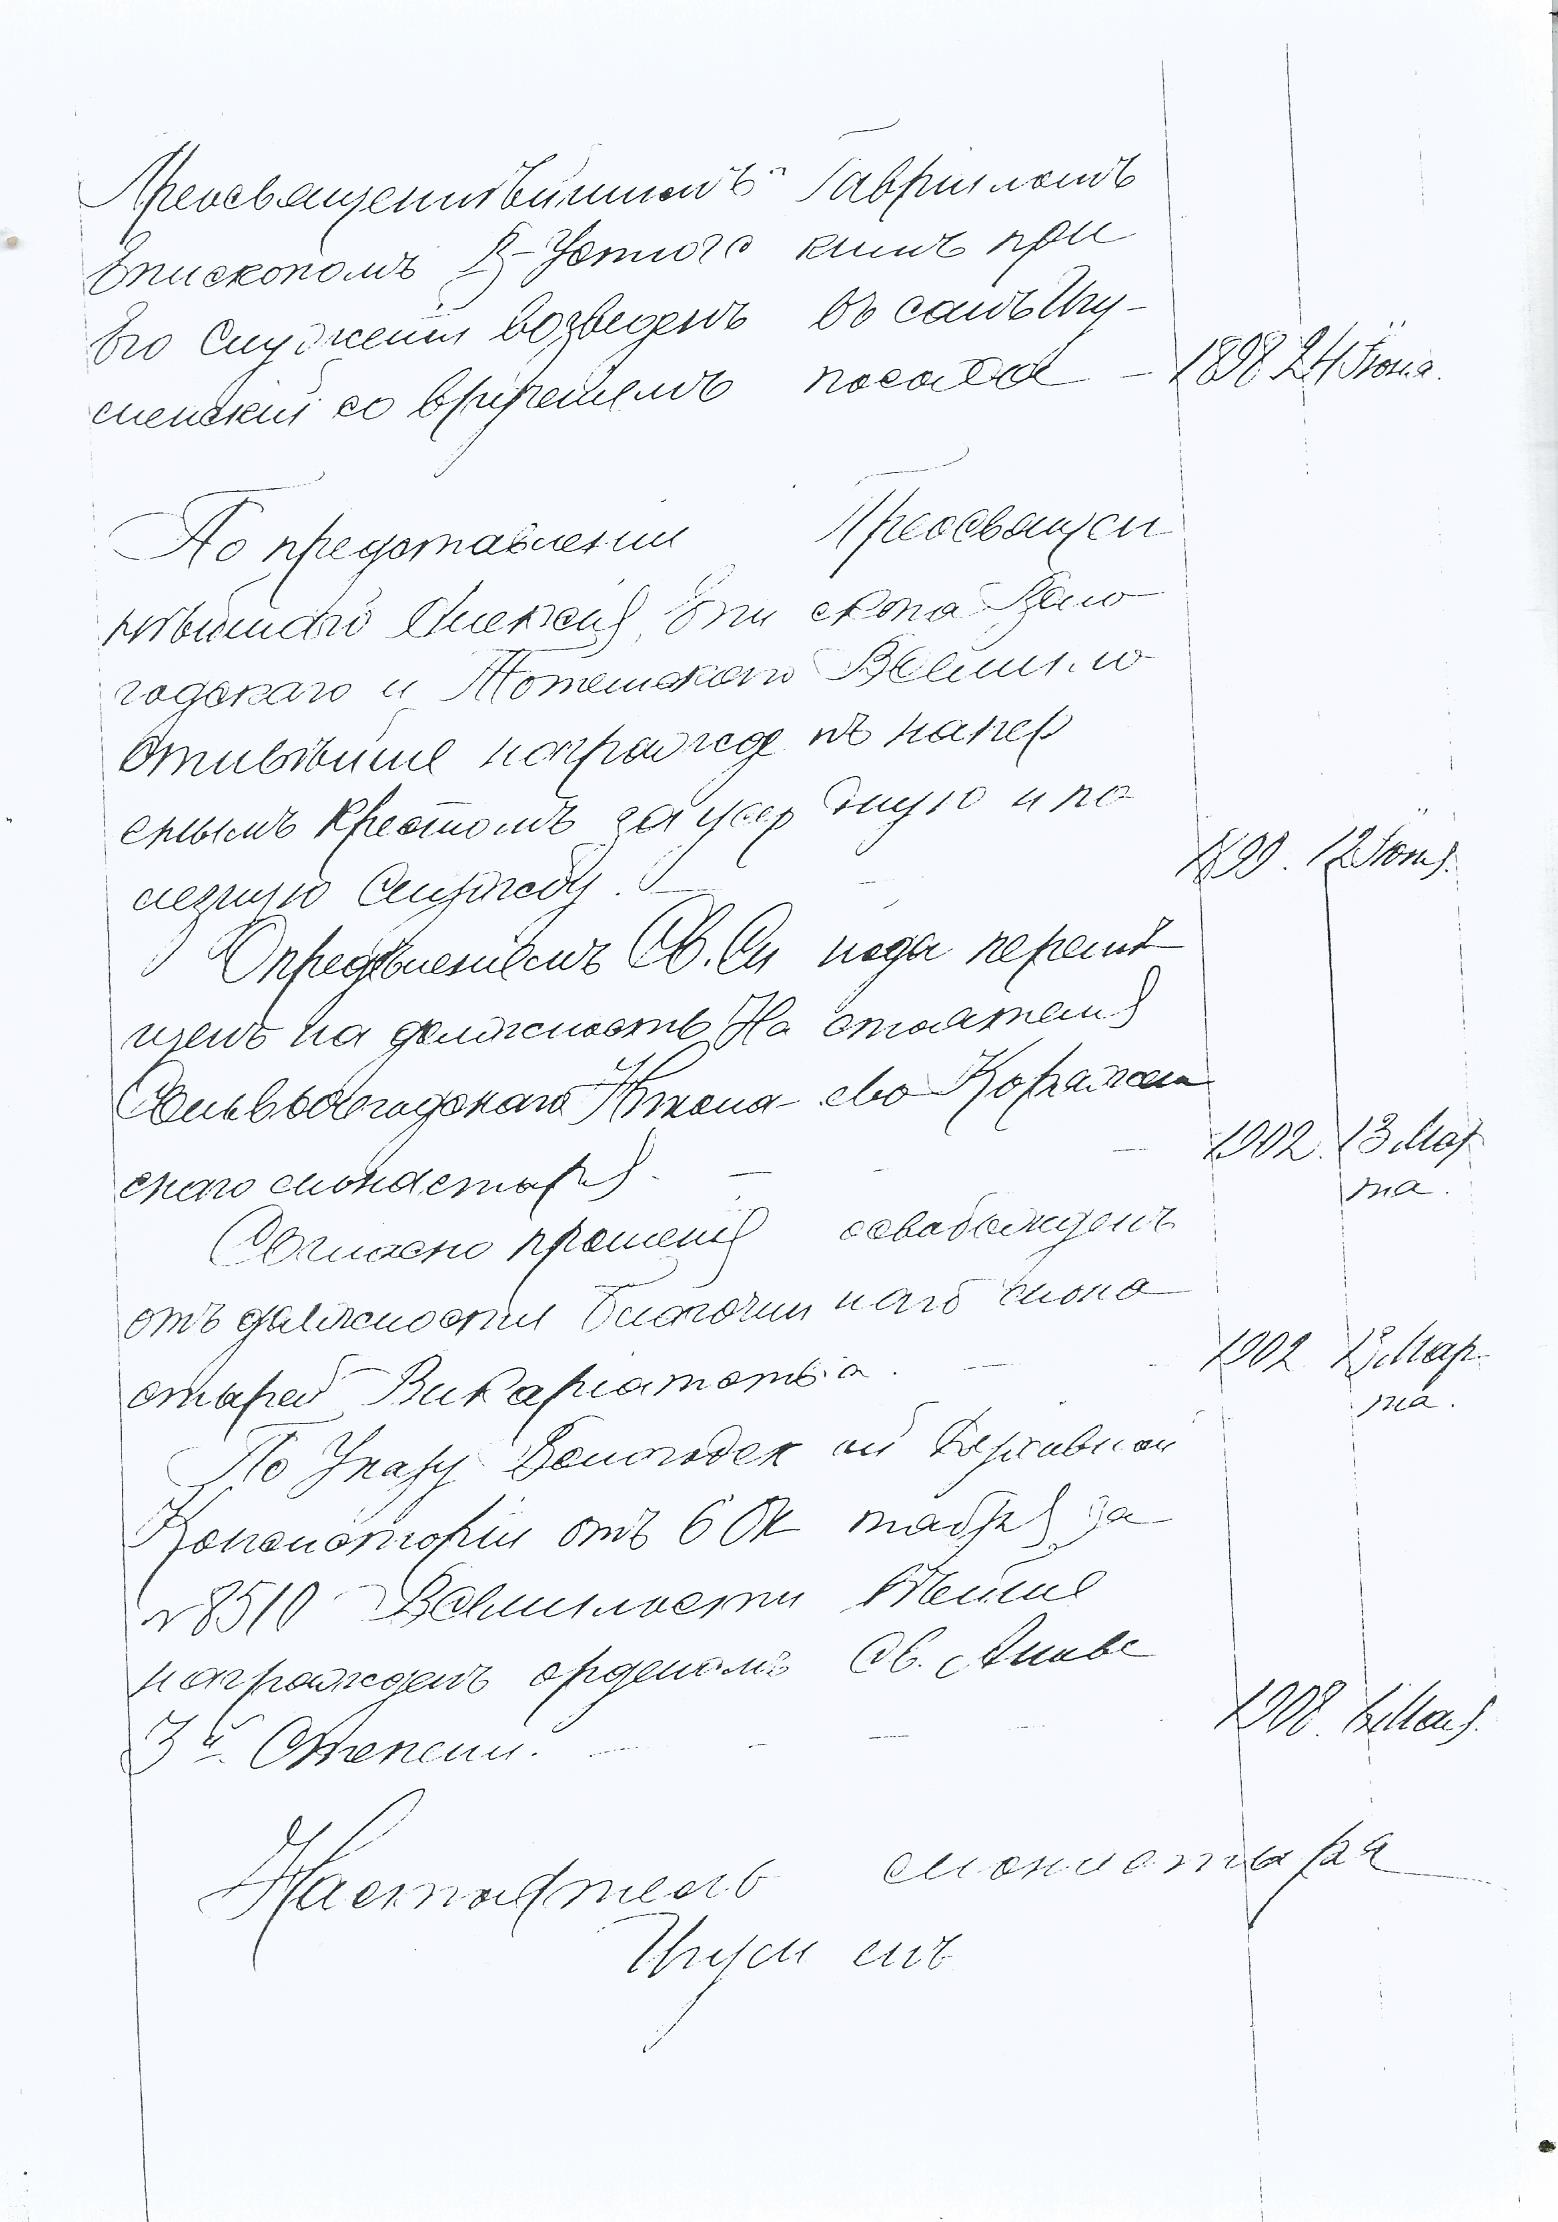 Преосвященнѣйшимъ Гавріиломъ
Епископомъ В-Устюгскимъ при
Его Служеніи возведенъ въ санъ Игу-
менскій со врученіемъ посоха — 1898 24 Іюня.
По представленію Преосвящен
нѣйшаго Алексія, Епископа Воло
годскаго и Тотемскаго Всемило
стивѣйше награжденъ напер
снымъ крестомъ за усердную и по
лезную службу. — 1899. 12 Іюня.
Опредѣленіемъ Св. Синода перемѣ
щенъ на должность Настоятеля
Сольвычегодскаго Коряжем
скаго монастыря. — 1902. 13 Мар
та.
Согласно прошенія освобожденъ
отъ должности Благочиннаго мона
стырей Викаріатства. — 1902 13 Мар
та.
По Указу Вологодской Духовной
Консисторіи отъ 6 Октября за
№ 8510 Всемилостивѣйше
награжденъ орденомъ Св. Анны
3й Степени. — 1908. 6 Мая.
Настоятель монастыря
Игуменъ